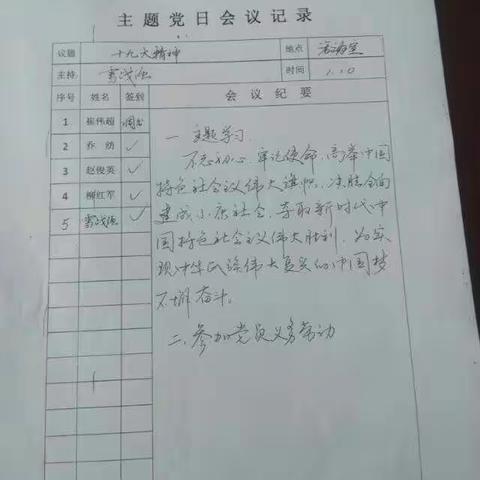 主题党日会议记录
议题 十九大精神 地点 活动室
主持: 雷战强 时间 1.10
序号 姓名 签到 会议纪要
1 崔伟超
2 乔纺 ✓
3 赵俊英 ✓
4 柳红军 ✓
5 雷战强 ✓
一 主题学习.
不忘初心,牢记使命,高举中国
特色社会议伟大旗帜,决胜全面
建成小康社会,夺取新时代中
国特色社会主义伟大胜利,为实
现中华民族伟大复兴的中国梦
不懈奋斗.
二、参加党员义务劳动